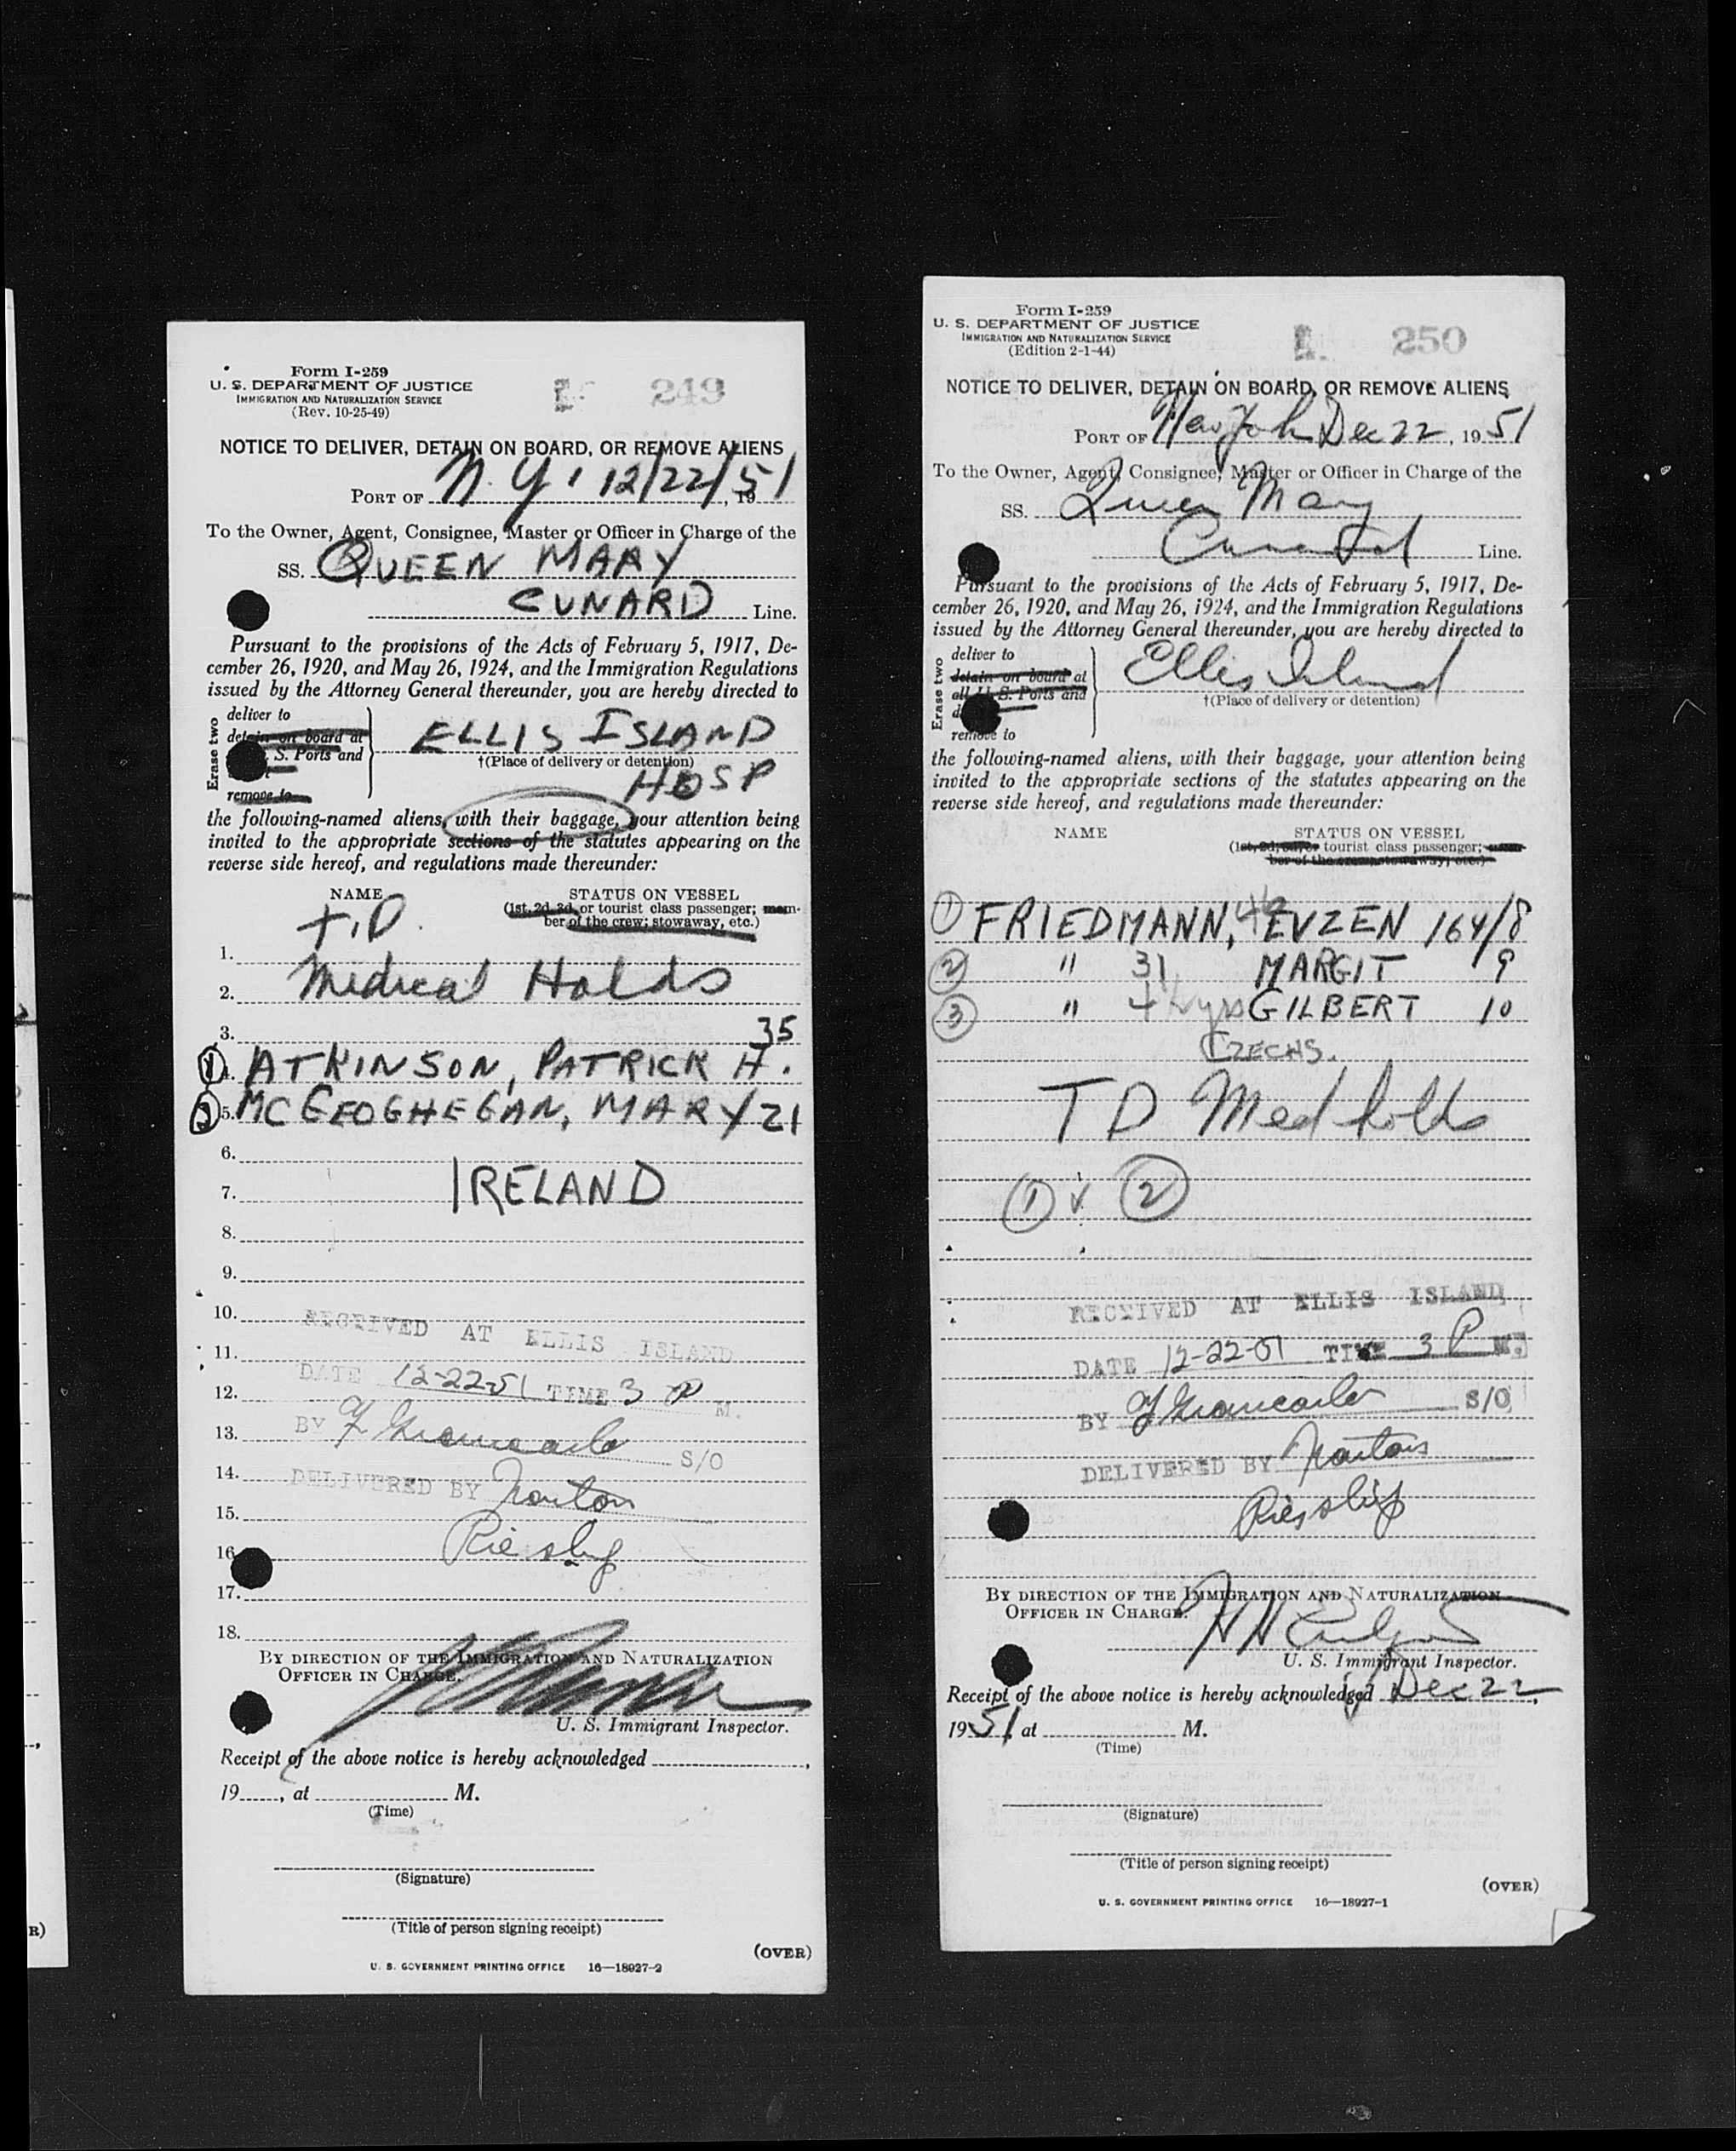 Form I-259
U. S. DEPARTMENT OF JUSTICE
IMMIGRATION AND NATURALIZATION SERVICE
(Rev. 10-25-49)
249
NOTICE TO DELIVER, DETAIN ON BOARD, OR REMOVE ALIENS
PORT OF N. Y. 12/22/51, 19
To the Owner, Agent, Consignee, Master or Officer in Charge of the
SS. QUEEN MARY
CUNARD Line.
Pursuant to the provisions of the Acts of February 5, 1917, De-
cember 26, 1920, and May 26, 1924, and the Immigration Regulations
issued by the Attorney General thereunder, you are hereby directed to
Erase two
deliver to
detain on board at
S. Ports and
remove to
ELLIS ISLAND
†(Place of delivery or detention)
HOSP
the following-named aliens, with their baggage, your attention being
invited to the appropriate sections of the statutes appearing on the
reverse side hereof, and regulations made thereunder:
NAME STATUS ON VESSEL
(1st, 2d, 3d, or tourist class passenger; mem-
ber of the crew; stowaway, etc.)
T.D.
1.
2. Medical Holds
3. 35
1 4. ATKINSON, PATRICK H.
2 5. MCGEOGHEGAN, MARY 21
6.
7. IRELAND
8.
9.
10.
RECEIVED AT ELLIS ISLAND
11.
DATE 12-22-51 TIME 3 P M.
12.
13. BY F Giancarlo S/O
14. DELIVERED BY Norton
15.
16.
17.
18.
BY DIRECTION OF THE IMMIGRATION AND NATURALIZATION
OFFICER IN CHARGE.
U. S. Immigrant Inspector.
Receipt of the above notice is hereby acknowledged
19, at M.
(Time)
(Signature)
(Title of person signing receipt)
(OVER)
U. S. GOVERNMENT PRINTING OFFICE 16—18927-2
R)
Form I-259
U. S. DEPARTMENT OF JUSTICE
IMMIGRATION AND NATURALIZATION SERVICE
(Edition 2-1-44)
250
NOTICE TO DELIVER, DETAIN ON BOARD, OR REMOVE ALIENS
PORT OF New York Dec 22, 1951
To the Owner, Agent, Consignee, Master or Officer in Charge of the
SS. Queen Mary
Cunard Line.
Pursuant to the provisions of the Acts of February 5, 1917, De-
cember 26, 1920, and May 26, 1924, and the Immigration Regulations
issued by the Attorney General thereunder, you are hereby directed to
Erase two
deliver to
detain on board at
all U. S. Ports and
remove to
Ellis Island
†(Place of delivery or detention)
the following-named aliens, with their baggage, your attention being
invited to the appropriate sections of the statutes appearing on the
reverse side hereof, and regulations made thereunder:
NAME STATUS ON VESSEL
(1st, 2d, 3d, or tourist class passenger; mem-
ber of the crew; stowaway, etc.)
1 FRIEDMANN, 46 EVZEN 164/8
2 " 31 MARGIT 9
3 " 4 1/2 yrs GILBERT 10
CZECHS.
T D Med holds
1 & 2
RECEIVED AT ELLIS ISLAND
DATE 12-22-51 TIME 3 P M.
BY F Giancarlo S/O
DELIVERED BY Norton
BY DIRECTION OF THE IMMIGRATION AND NATURALIZATION
OFFICER IN CHARGE.
U. S. Immigrant Inspector.
Receipt of the above notice is hereby acknowledged Dec 22,
1951, at M.
(Time)
(Signature)
(Title of person signing receipt)
(OVER)
U. S. GOVERNMENT PRINTING OFFICE 16—18927-1